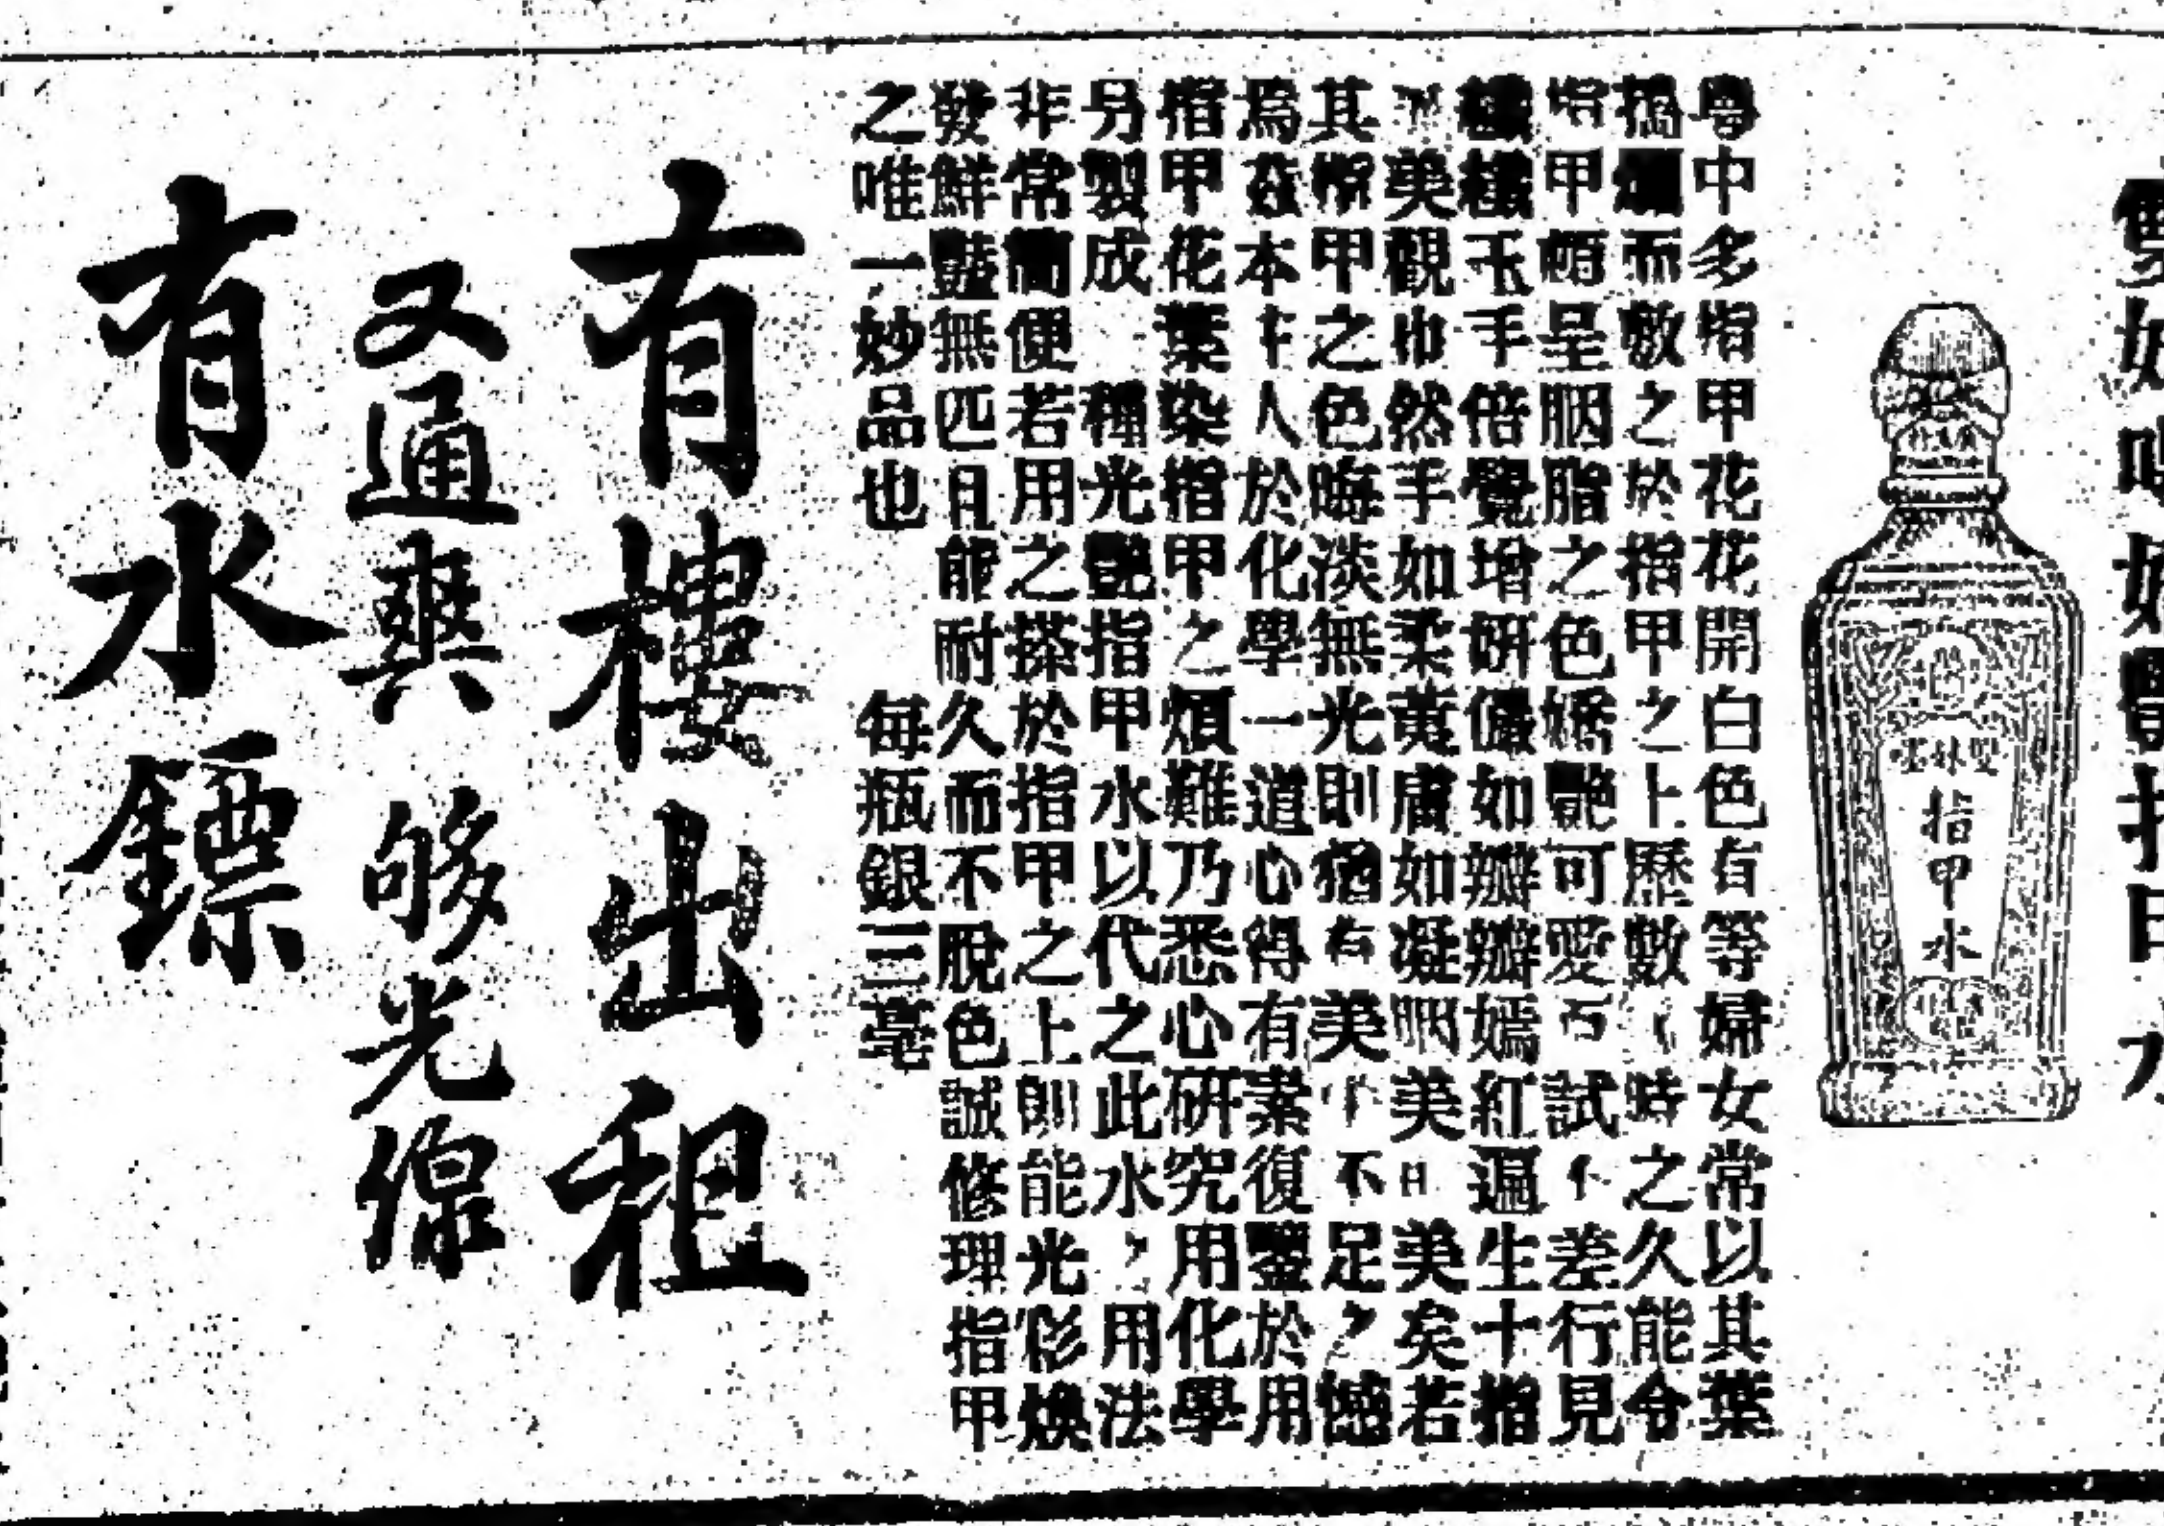 指甲水
粵中多指甲花花開白色有等婦女常以其葉
搗爛而敷之於指甲之上歷數時之久能令
指甲頓呈胭脂之色嬌艷可愛試差行見
纖纖玉手倍覺增妍儼如瓣瓣嫣紅遍生十指
美觀也然手如柔荑膚如凝美美矣若
其指甲之色晦淡無光則猶有美不足之憾
焉茲本主人於化學一道心得有素復鑒於用
指甲花葉染指甲之煩難乃悉心研究用化學
另製成種光艷指甲水以代之此水用法
非常簡便若用之搽於指甲之上則能光彩煥
發鮮豔無匹且能耐久而不脫色誠修理指甲
之唯一妙品也 每瓶銀三毫
有樓出租
又通爽 够光線
有水鏢